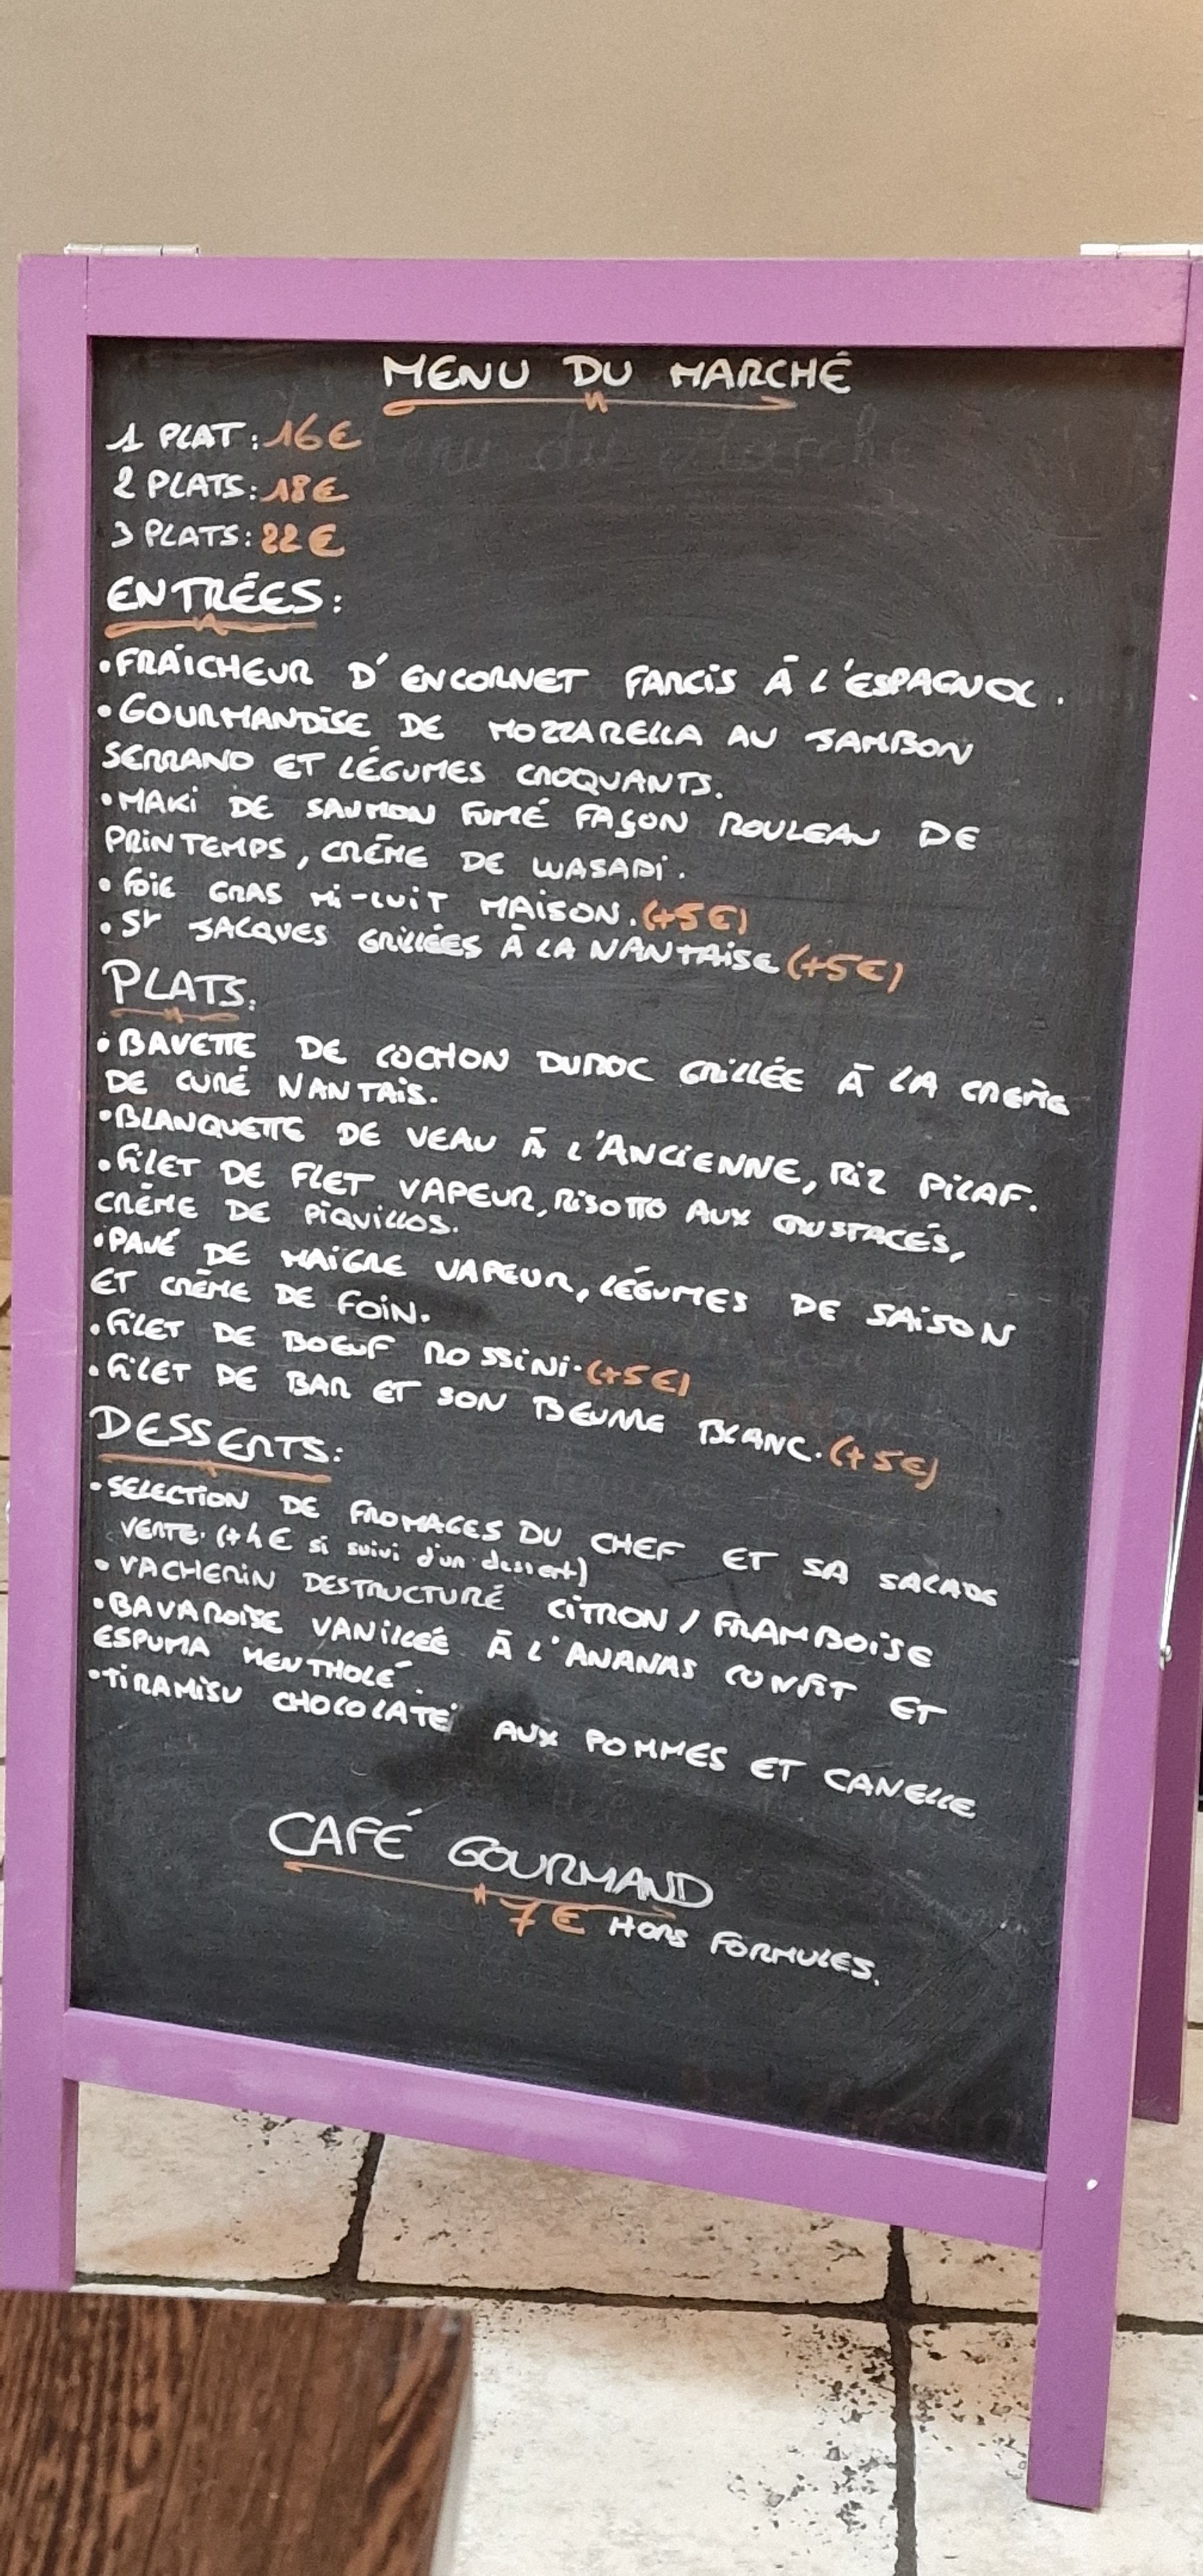 MENU DU MARCHÉ
1 PLAT : 16€
2 PLATS : 18€
3 PLATS : 22€
ENTRÉES :
• FRAÎCHEUR D'ENCORNET FARCIS À L'ESPAGNOL.
• GOURMANDISE DE MOZZARELLA AU JAMBON
SERRANO ET LÉGUMES CROQUANTS.
• MAKI DE SAUMON FUMÉ FAÇON ROULEAU DE
PRINTEMPS, CRÈME DE WASABI.
• FOIE GRAS MI-CUIT MAISON. (+5€)
• ST JACQUES GRILLÉES À LA NANTAISE (+5€)
PLATS :
• BAVETTE DE COCHON DUROC GRILLÉE À LA CRÈME
DE CURÉ NANTAIS.
• BLANQUETTE DE VEAU À L'ANCIENNE, RIZ PILAF.
• FILET DE FLET VAPEUR, RISOTTO AUX CRUSTACÉS,
CRÈME DE PIQUILLOS.
• PAVÉ DE MAIGRE VAPEUR, LÉGUMES DE SAISON
ET CRÈME DE FOIN.
• FILET DE BOEUF ROSSINI. (+5€)
• FILET DE BAR ET SON BEURRE BLANC. (+5€)
DESSERTS :
• SELECTION DE FROMAGES DU CHEF ET SA SALADE
VERTE. (+4€ si suivi d'un dessert)
• VACHERIN DESTRUCTURÉ CITRON / FRAMBOISE
• BAVAROISE VANILLÉE À L'ANANAS CONFIT ET
ESPUMA MENTHOLÉ.
• TIRAMISU CHOCOLATÉ AUX POMMES ET CANELLE
CAFÉ GOURMAND
7€ HORS FORMULES.